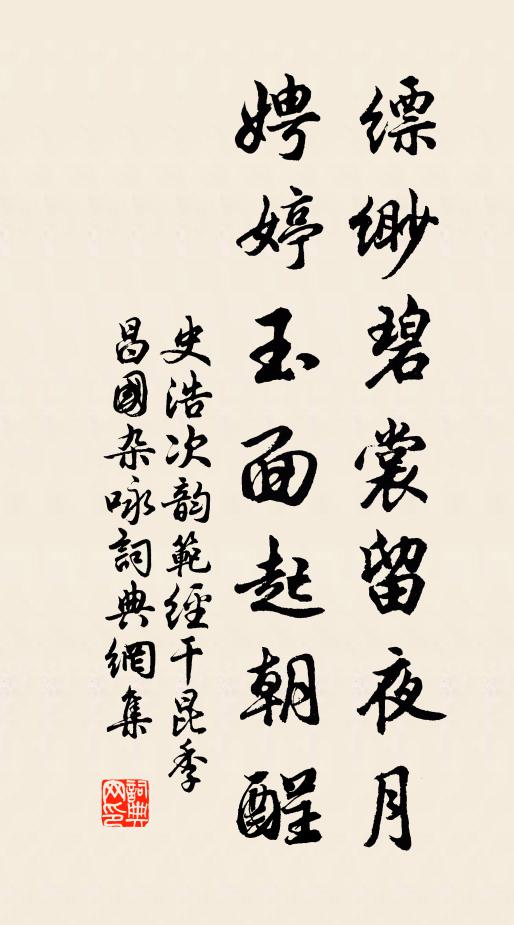 缥缈碧裳留夜月
娉婷玉面起朝酲
史浩次韻範經干昆季
昌國杂咏詞典網集
詞典
网印